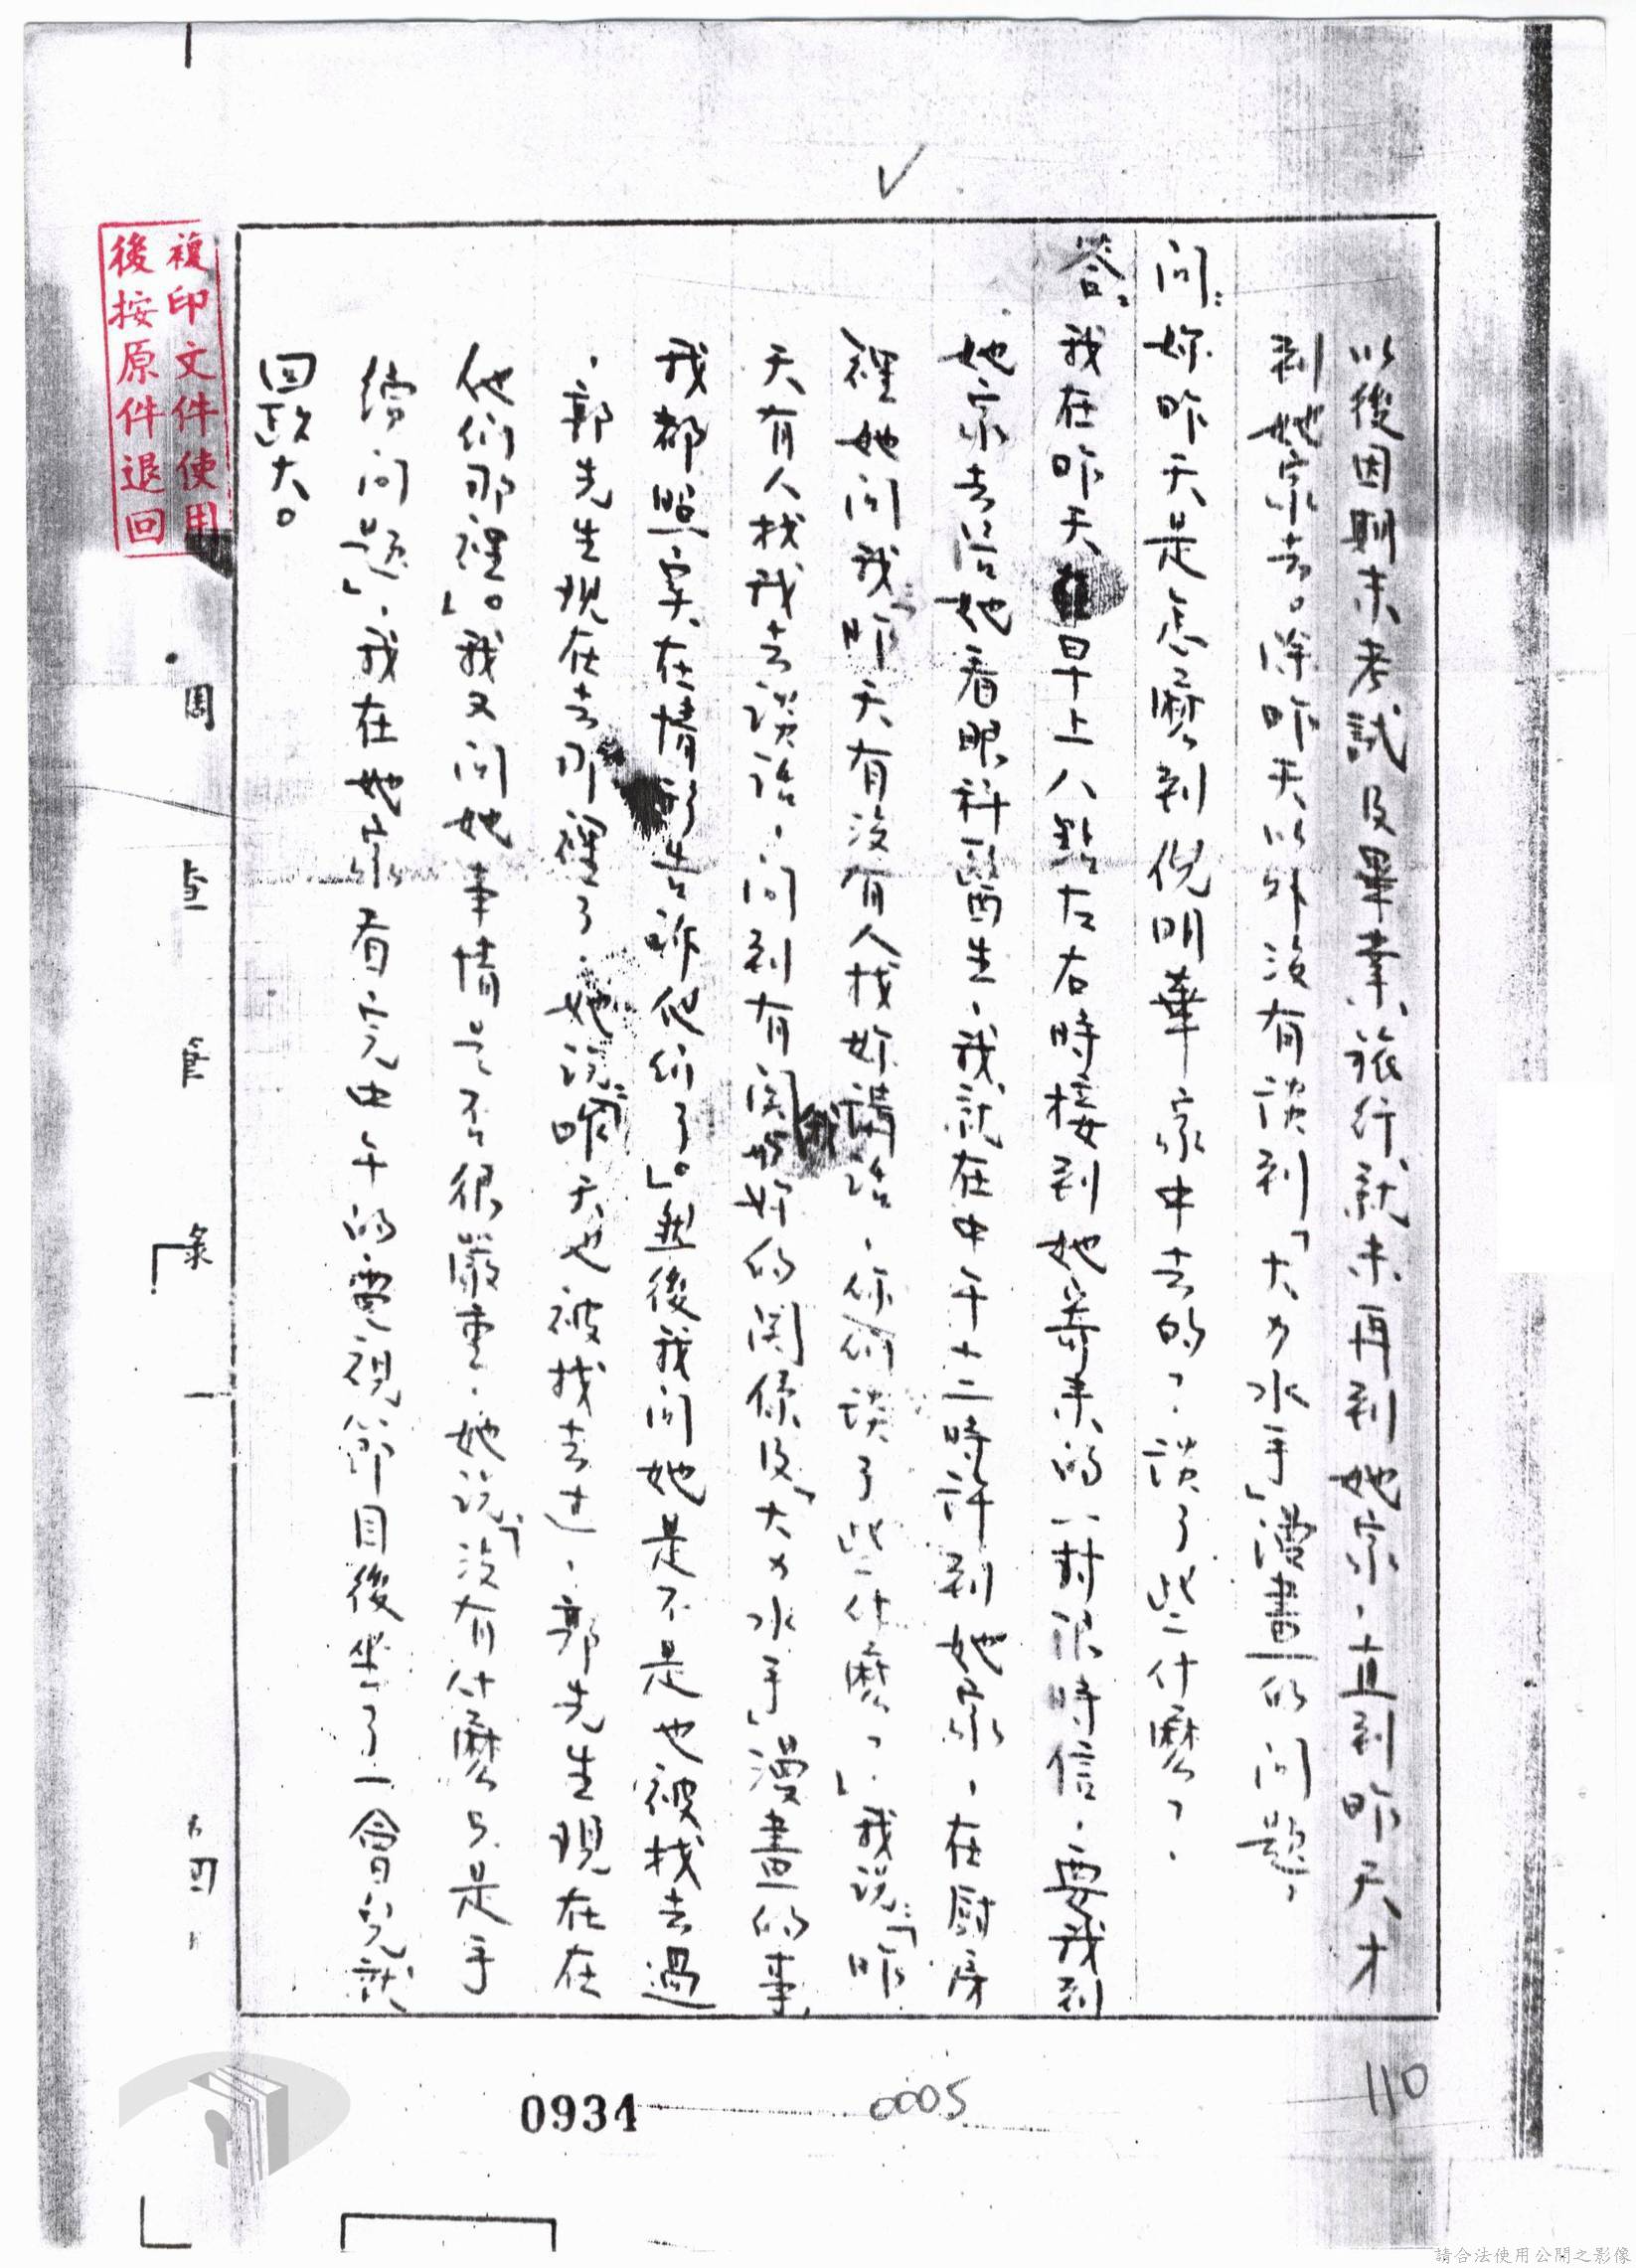 以後因期末考試及畢業旅行就未再到她家，直到昨天才
到她家去。除昨天以外沒有談到「大力水手」漫畫的問題，
問：妳昨天是怎麼到倪明華家中去的？，談了些什麼？，
答：我在昨天早上八點左右時接到她寄來的一封限時信，要我到
她家去陪她看眼科醫生，我就在中午十二時許到她家，在厨房
裡她問我「昨天有沒有人找妳講話，你們談了些什麼？」，我說：「昨
天有人找我去談話，問到有関妳的関係及「大力水手」漫畫的事
我都照實在情形告訴他們了」。然後我問她是不是也被找去過
，郭先生現在去那裡了，她說：「昨天也被找去过，郭先生現在在
他們那裡」。我又問她事情是否很嚴重，她說：「沒有什麼只是手
續問題」，我在她家看完中午的電視節目後坐了一會兒就
回政大。
複印文件使用
後按原件退回
0934
0005
110
請合法使用公開之影像